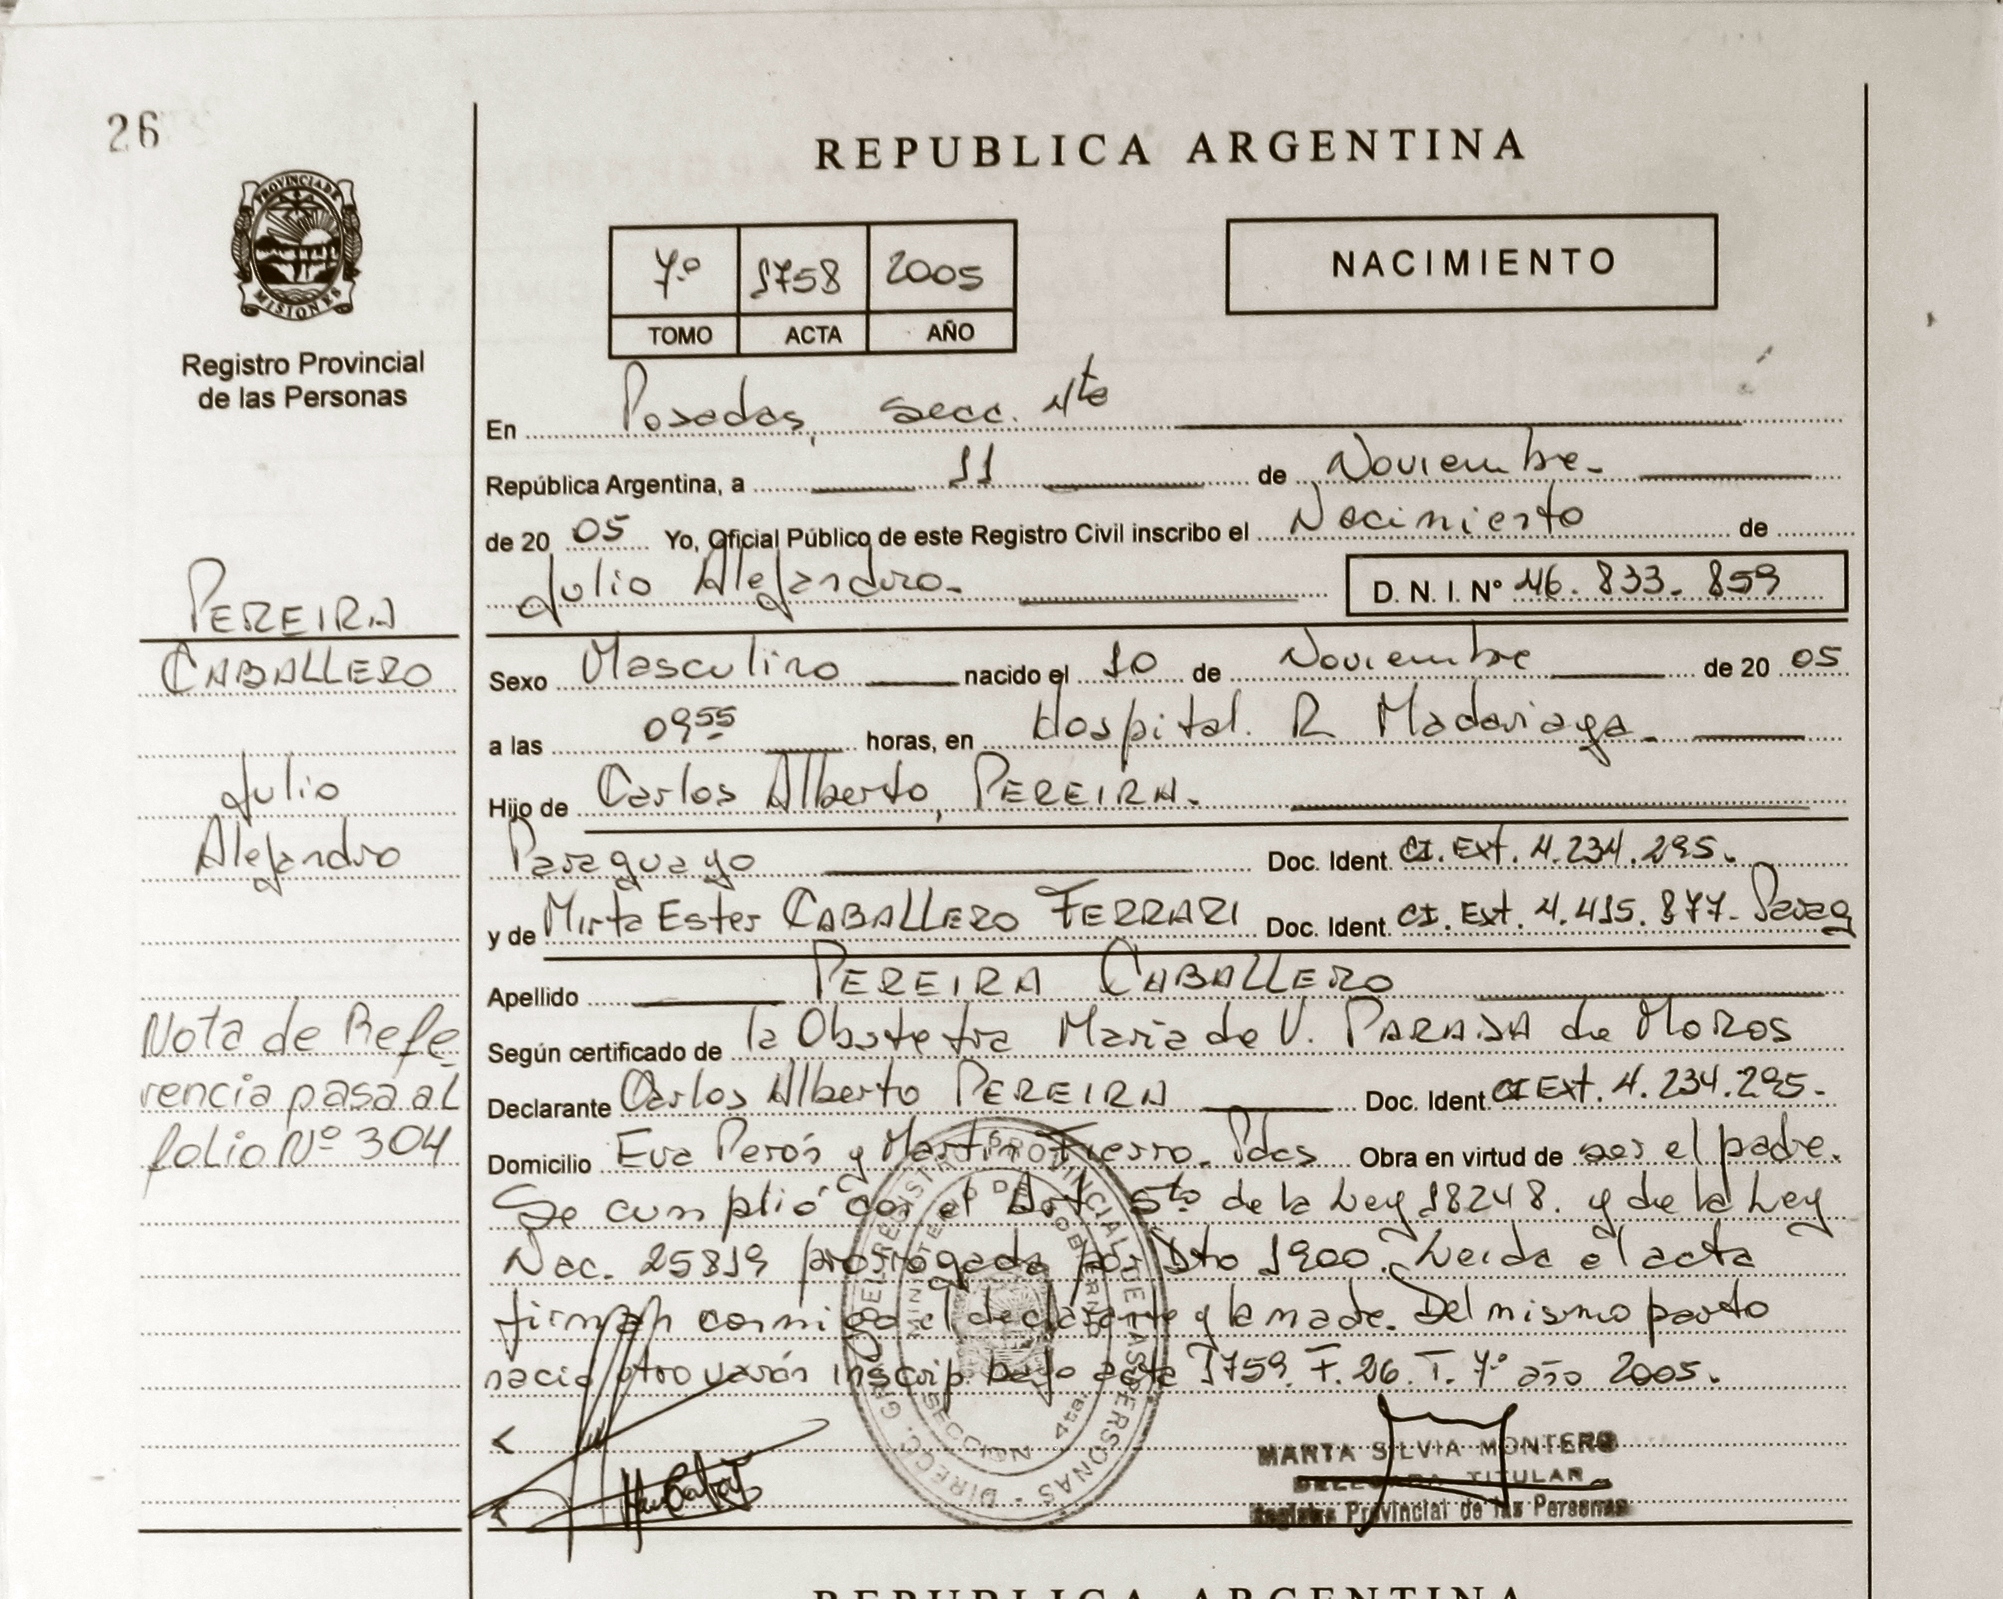 26
REPUBLICA ARGENTINA
PROVINCIA DE
MISIONES
Registro Provincial
de las Personas
7º 1758 2005
TOMO ACTA AÑO
NACIMIENTO
En Posadas, Secc. 4ta
República Argentina, a 11 de Noviembre.
de 20 05 Yo, Oficial Público de este Registro Civil inscribo el Nacimiento de
Julio Alejandro. D. N. I. Nº 46. 833. 859
PEREIRA
CABALLERO
Julio
Alejandro
Sexo Masculino nacido el 10 de Noviembre de 20 05
a las 09 55 horas, en Hospital. R Madariaga.
Hijo de Carlos Alberto, PEREIRA.
Paraguayo Doc. Ident. CI. Ext. 4.234.295.
y de Mirta Ester CABALLERO FERRARI Doc. Ident. CI. Ext. 4.415.877. Parag
Apellido PEREIRA CABALLERO
Según certificado de la Obstetra Maria de V. de MOROS
Declarante Carlos Alberto PEREIRA Doc. Ident. CI Ext. 4.234.295.
Domicilio Eva Perón y Martin Fierro. Pdas Obra en virtud de ser el padre.
Se cumplió con el Art 5to de la Ley 18248. y de la Ley
Nac. 25819 prorrogada por Dto 1900. Leida el acta
firman conmigo el declarante y la madre. Del mismo parto
nacio otro varón inscrip. bajo acta 1759. F. 26. T. 7º año 2005.
Nota de Refe
rencia pasa al
folio Nº 304
DIRECC. GRAL. DEL REGISTRO PROVINCIAL DE LAS PERSONAS
MINISTERIO DE GOBIERNO
SECCION 4ta.
MARTA SILVIA MONTERO
DELEGADA TITULAR
Registro Provincial de las Personas
REPUBLICA ARGENTINA